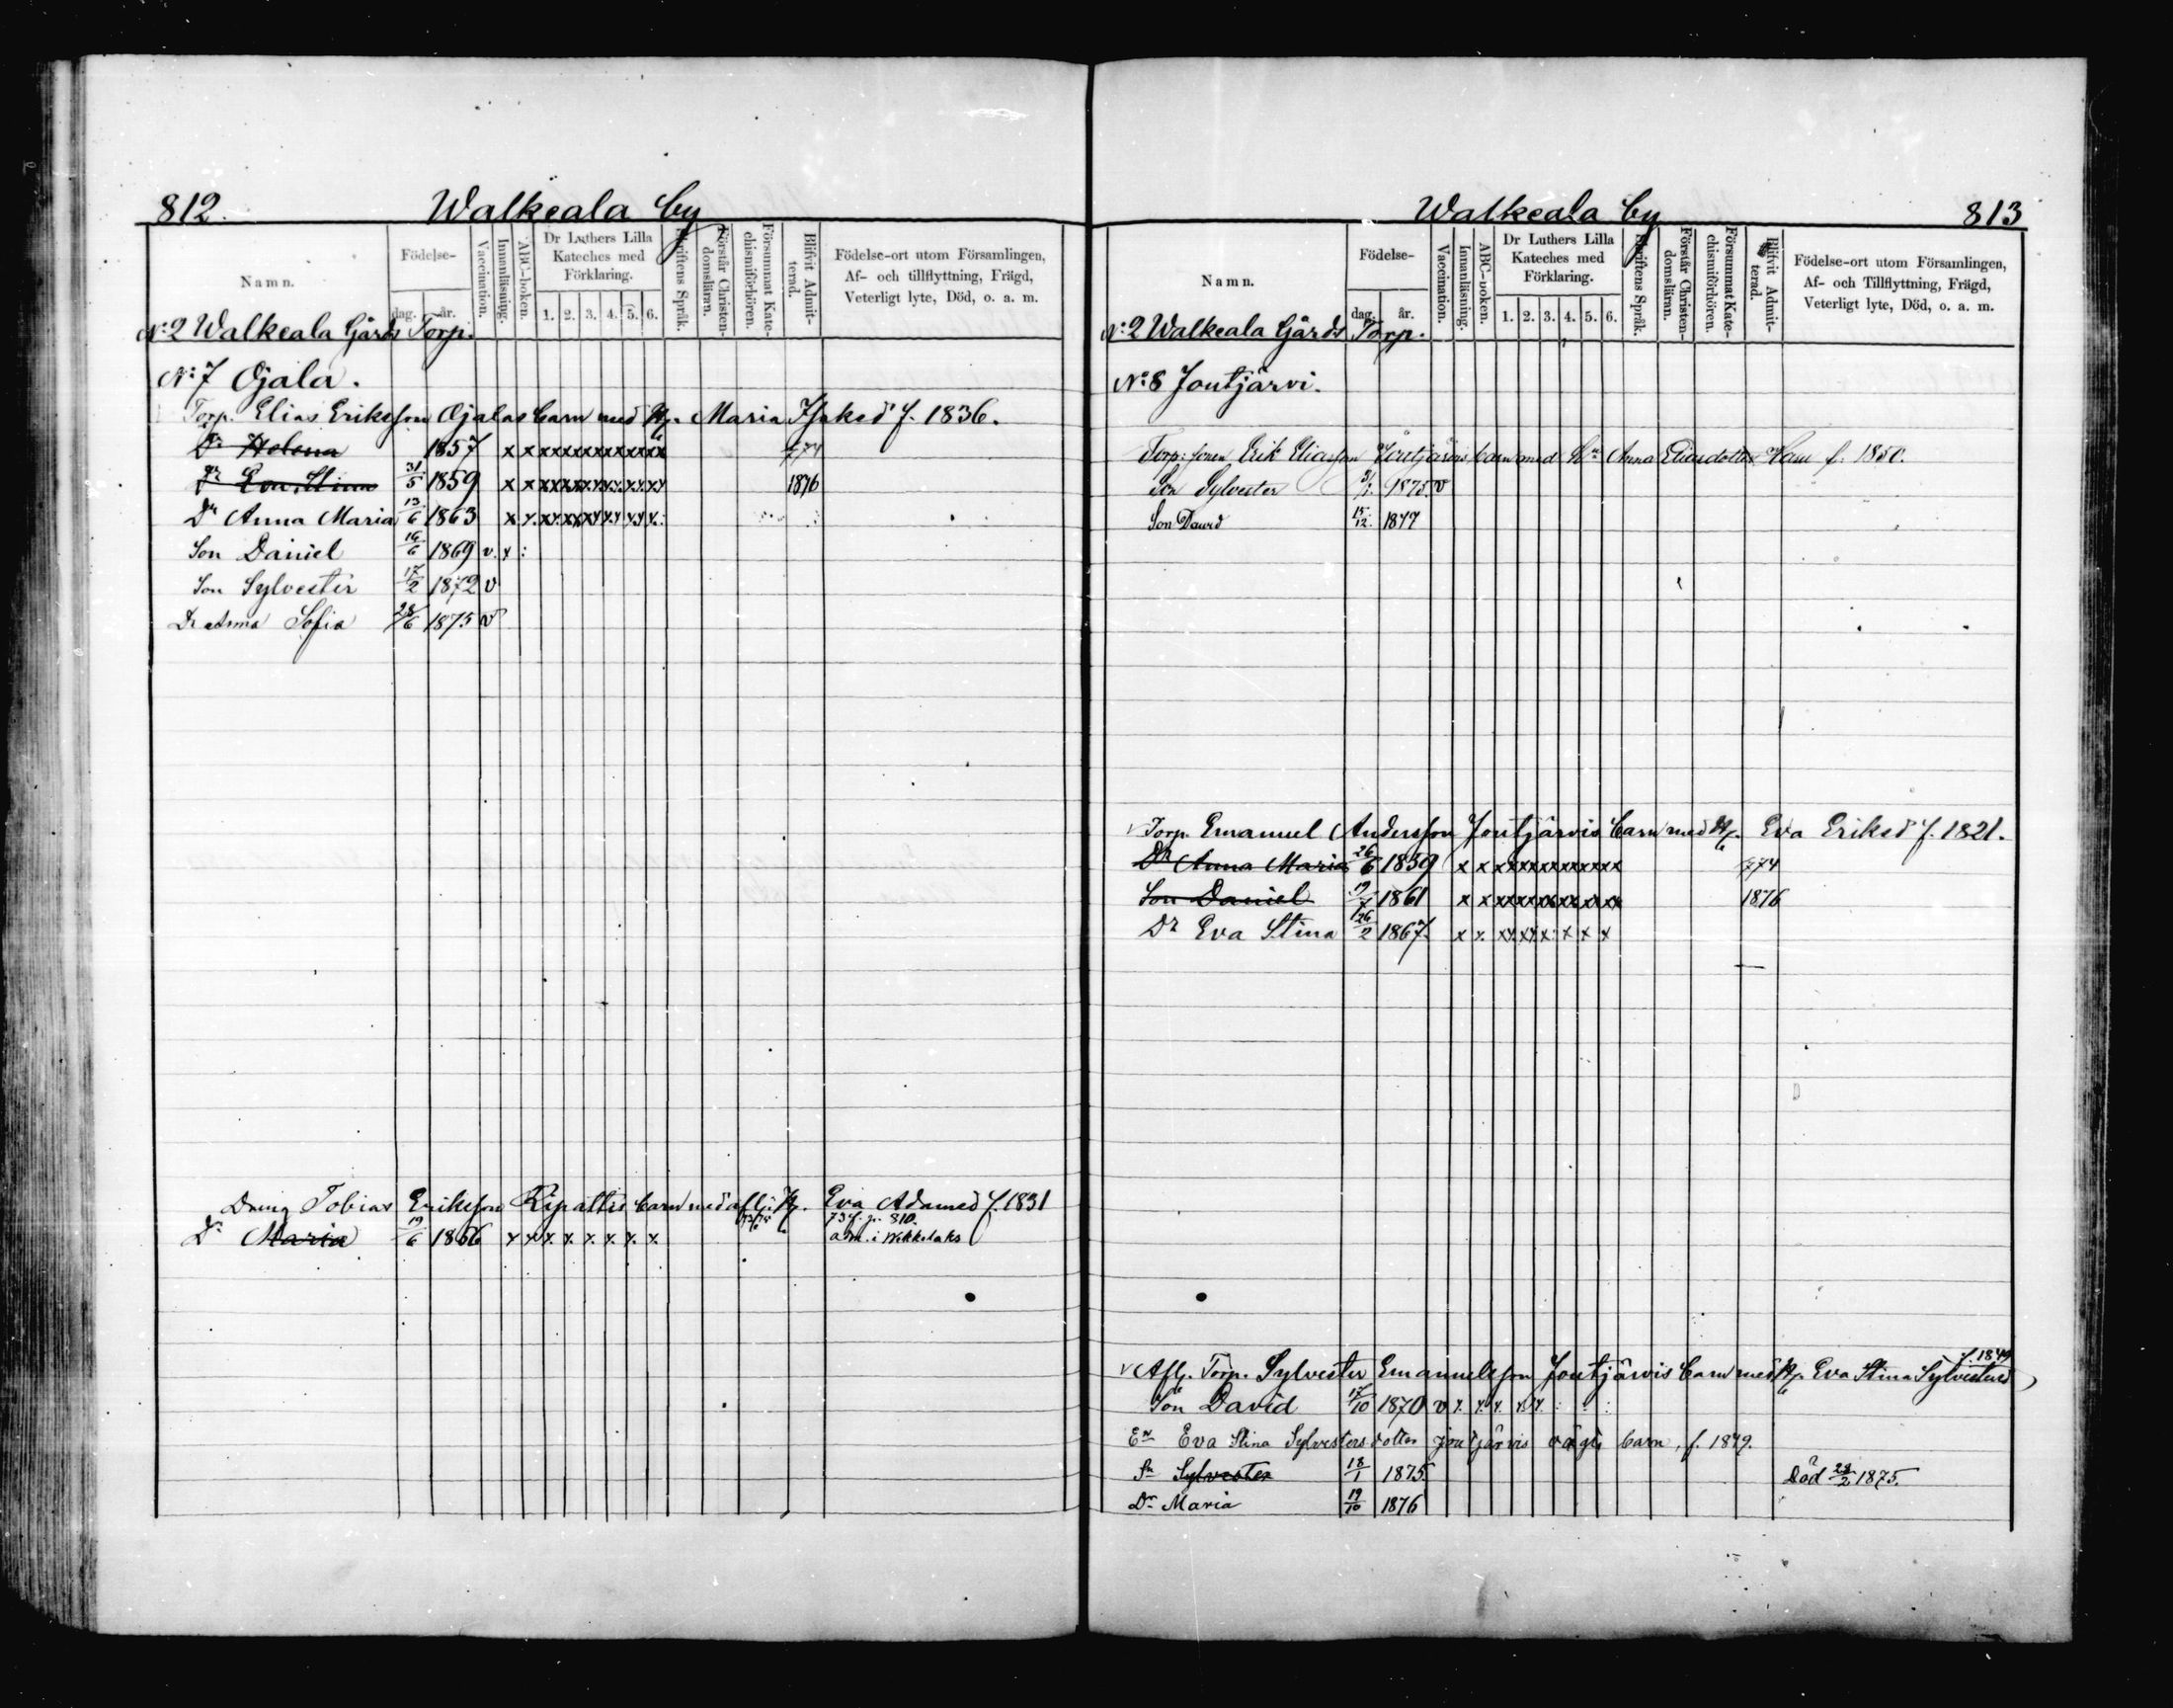 812. Walkeala by
Namn. Födelse- dag. år. Vaccination. Innanläsning. ABC-boken. Dr Luthers Lilla Kateches med Förklaring. 1. 2. 3. 4. 5. 6. Skriftens Språk. Förstår Christen-domsläran. Försummat Kate-chismiförhören. Blifvit Admit-terad. Födelse-ort utom Församlingen, Af- och tillflyttning, Frägd, Veterligt lyte, Död, o. a. m.
No 2 Walkeala Gårds Torp.
No 7 Ojala.
Torp. Elias Eriksson Ojalas barn med Hu. Maria Isaksd f. 1836.
Dr Helena 1857 x x xxxxxxxxxxxx 774
Dr Eva Stina 31/5 1859 x x xxxxxxxxxxxx 1876
Dr Anna Maria 13/6 1863 x x xxxxxxxxxxx
Son Daniel 16/6 1869 v. x :
Son Sylvester 17/2 1872 v
Dr Anna Sofia 28/6 1875 v
Dräng Tobias Eriksson Ripattis barn med afl. Hu. Eva Adamsd f. 1831
73 f. p. 810.
Dr Maria 19/6 1856 x x x x x x x x adm. i Wekkelaks
Walkeala by 813
Namn. Födelse- dag. år. Vaccination. Innanläsning. ABC-boken. Dr Luthers Lilla Kateches med Förklaring. 1. 2. 3. 4. 5. 6. Skriftens Språk. Förstår Christen-domsläran. Försummat Kate-chismiförhören. Blifvit Admit-terad. Födelse-ort utom Församlingen, Af- och Tillflyttning, Frägd, Veterligt lyte, Död, o. a. m.
No 2 Walkeala Gårds Torp.
No 8 Joutjärvi.
Torp: sonen Erik Eliasson barn med Hu Anna Eliasdotter f. 1850.
Son Sylvester 1875 v
Son David 15/12 1877
Torp. Emanuel Andersson Joutjärvis barn med Hu. Eva Eriksd f. 1821.
Dr Anna Maria 26/6 1859 x x xxxxxxxxxxxx 774
Son Daniel 1861 x x xxxxxxxxxxxx 1876
Dr Eva Stina 26/2 1867 x x. xx xx x x x x
f. 1849
Afl. Torp. Sylvester Emanuelsson Joutjärvis barn med Hu. Eva Stina Sylvestersd
Son David 1870 v x. x x. x x.
En Eva Stina Sylvestersdotter Joutjärvis oägta barn, f. 1849.
Sn Sylvester 18/1 1875 Död 28/2 1875.
Dr Maria 19/10 1876